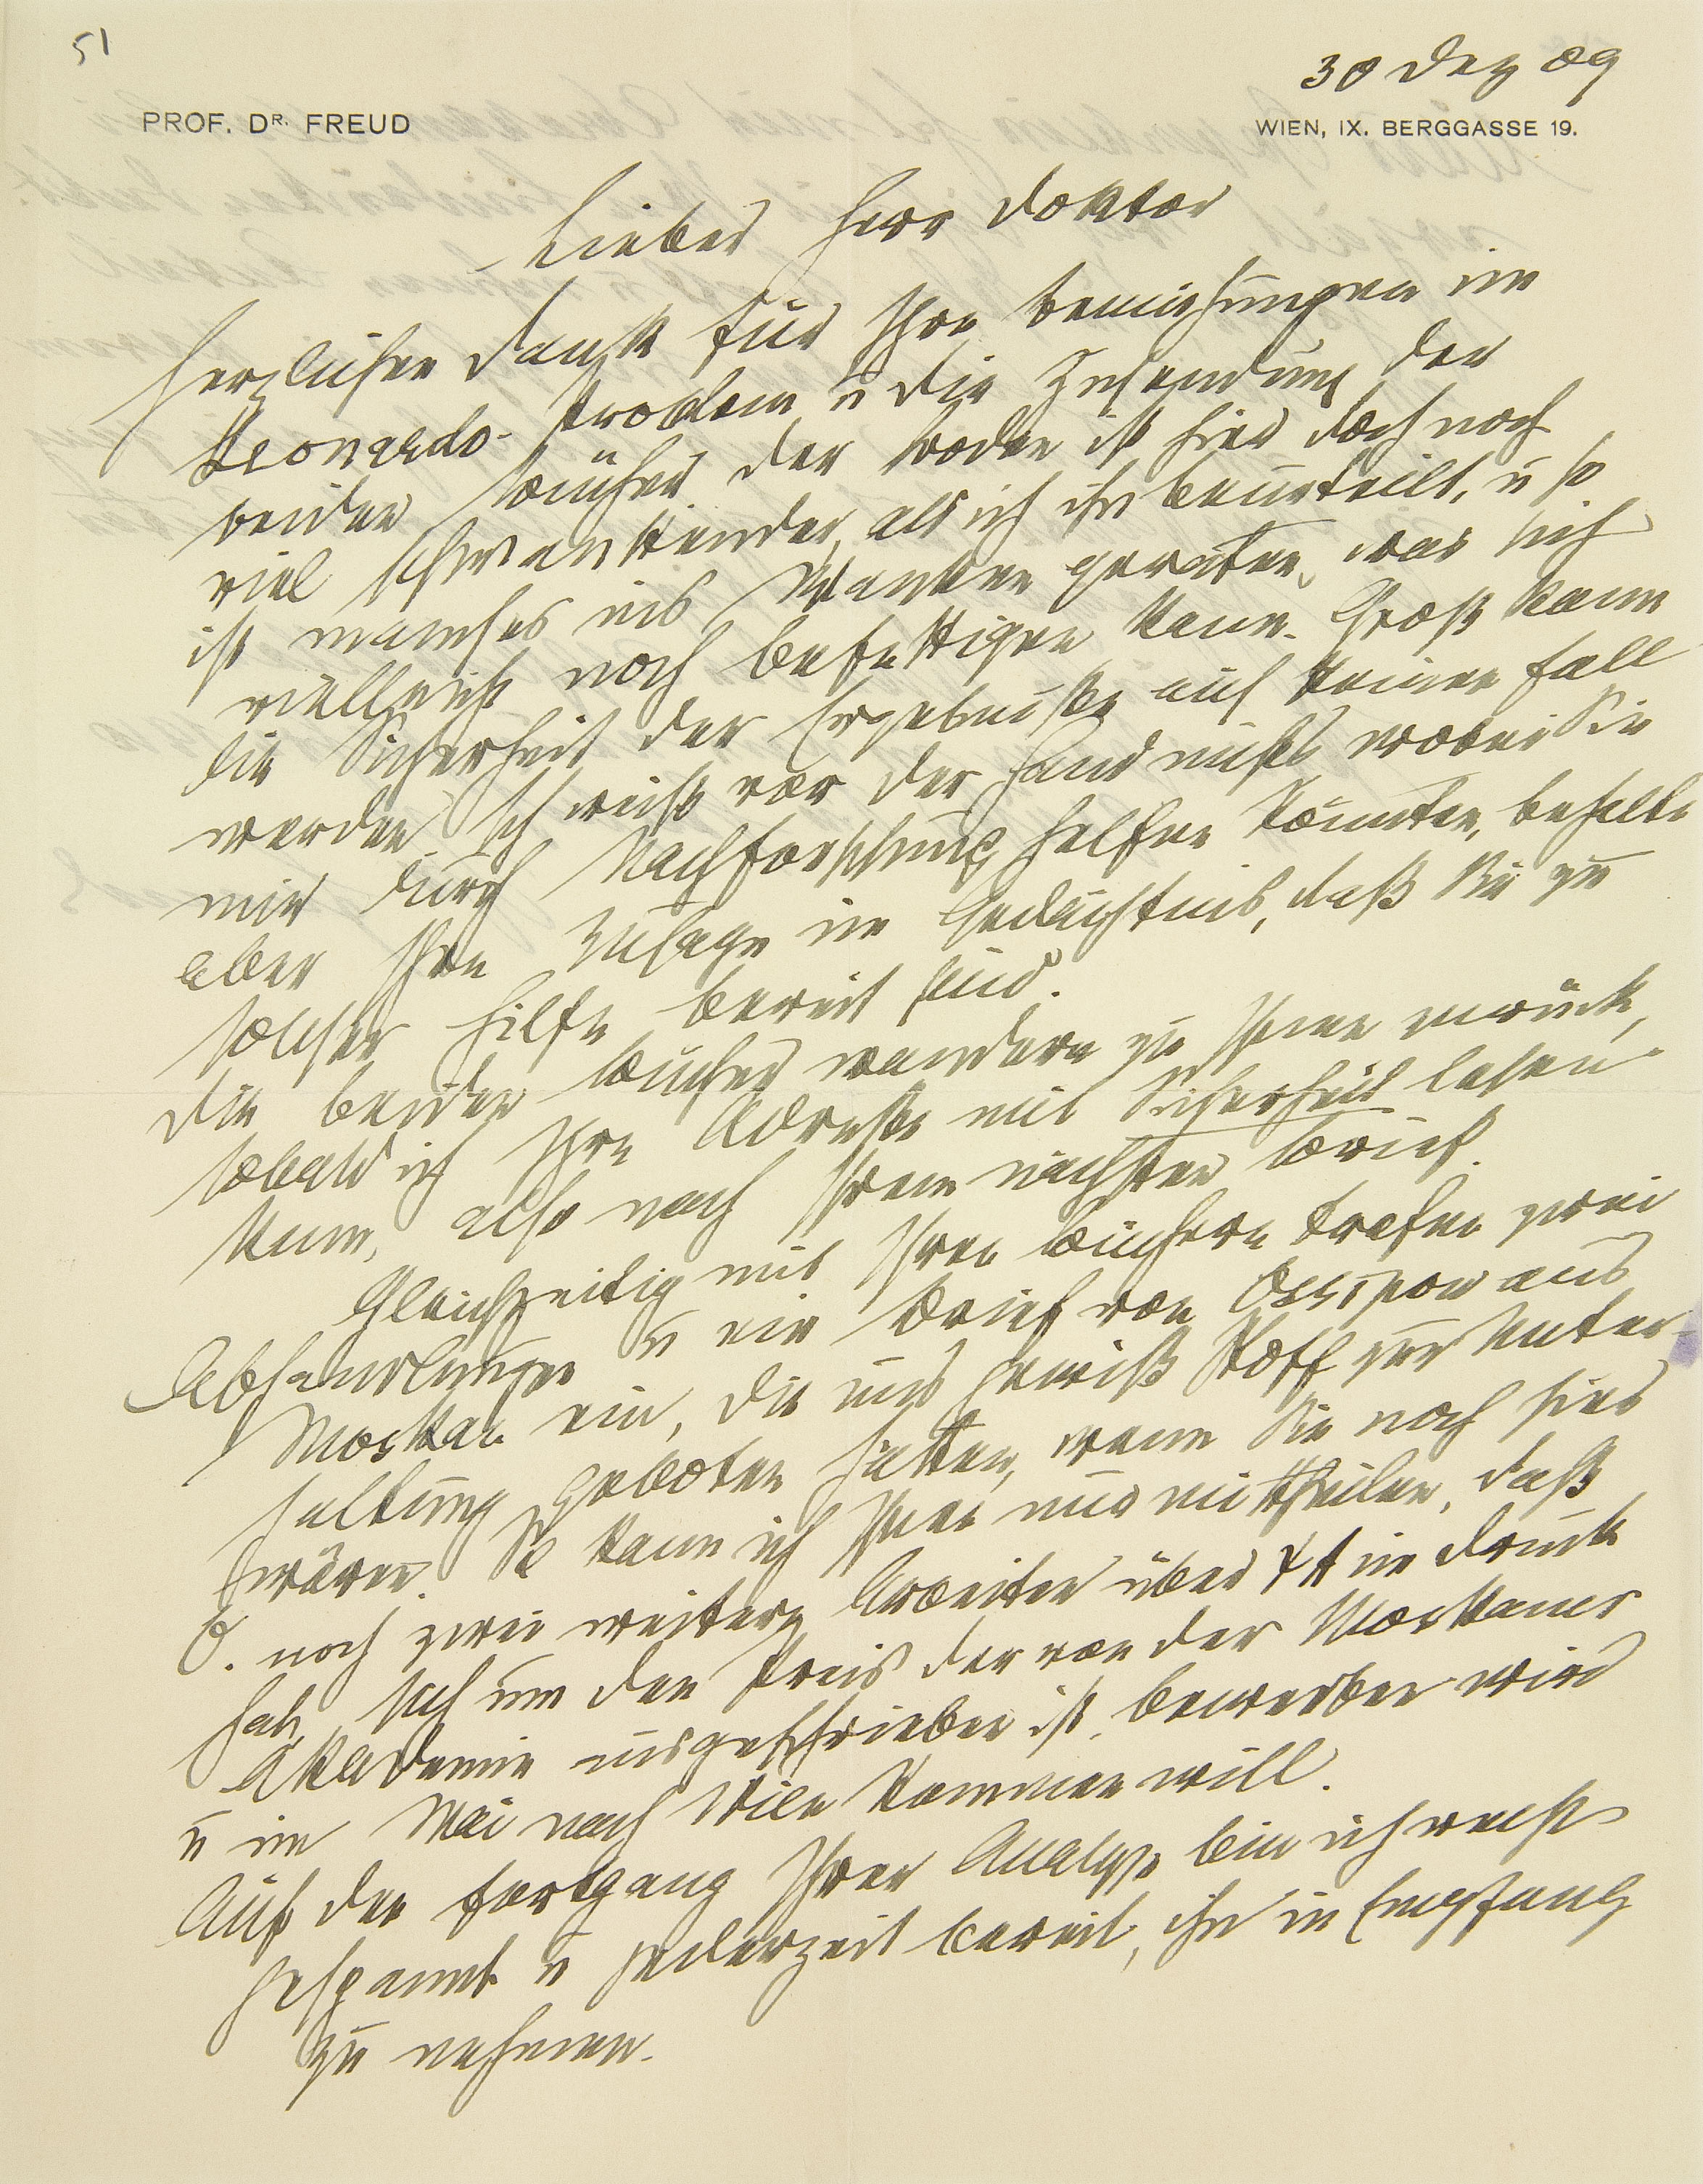 51
30 Dez 09
PROF. DR. FREUD
WIEN, IX. BERGGASSE 19.
Lieber Herr Doktor
Herzlichen Dank für Ihre Bemühungen im
Leonardo-Problem u die Zusendung der
beiden Bücher. Der Boden ist hier doch noch
viel schwankender, als ich ihn beurteilt, u so
ist manches ins Wanken geraten, was sich
vielleicht noch befestigen kann. Groß kann
die Sicherheit der Ergebnisse auf keinen Fall
werden. Ich weiß vor der Hand nichts wobei Sie
mir durch Nachforschung helfen könnten, behalte
aber Ihre Zusage im Gedächtnis, daß Sie zu
solcher Hilfe bereit sind.
Die beiden Bücher wandern zu Ihnen zurück,
sobald ich Ihre Adresse mit Sicherheit lesen
kann, also nach Ihrem nächsten Brief.
Gleichzeitig mit Ihren Büchern trafen zwei
Abhandlungen u ein Brief von Ossipow aus
Moskau ein, die uns gewiß Stoff zur Unter-
haltung geboten hätten, wenn Sie noch hier
wären. So kann ich Ihnen nur mittheilen, daß
O. noch zwei weitere Arbeiten über ΨA im Druck
hat, sich um den Preis der von der Moskauer
Akademie ausgeschrieben ist, bewerben wird
u im Mai nach Wien kommen will.
Auf den Fortgang Ihrer Analyse bin ich recht
gespannt u jederzeit bereit, ihn in Empfang
zu nehmen.